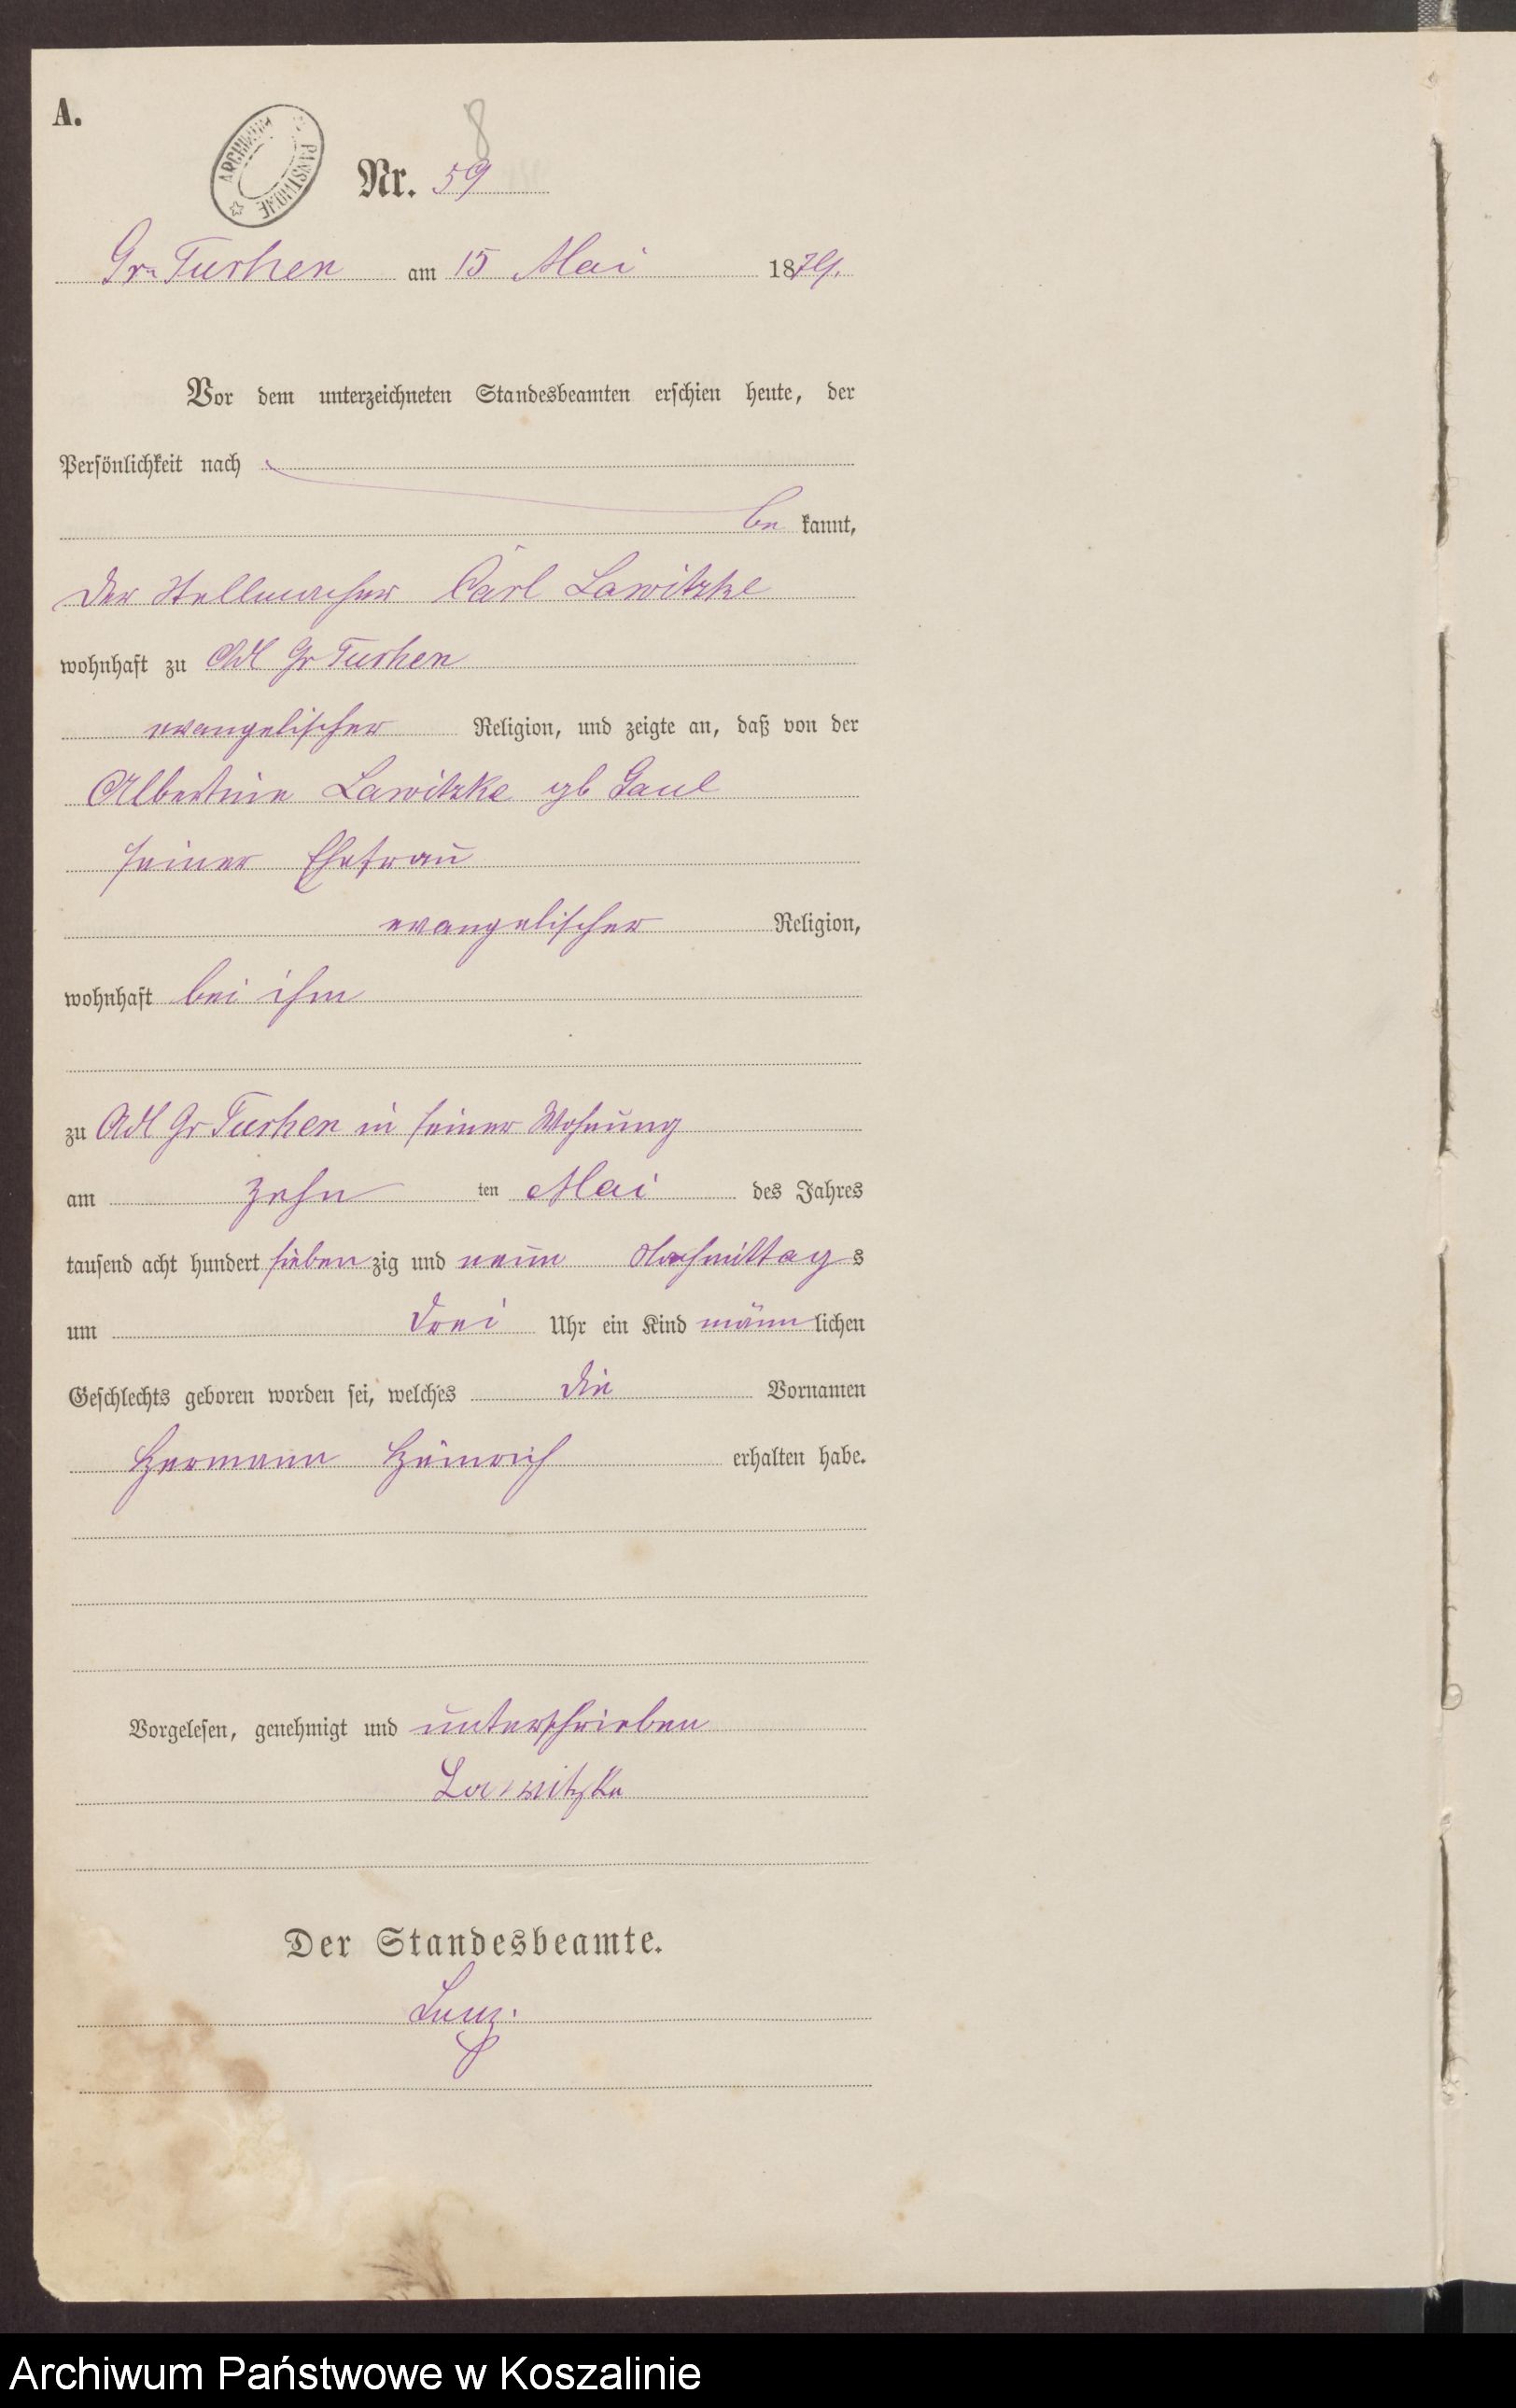 A.
8
ARCHIWUM PAŃSTWOWE
Nr. 59
Gr. Tuchen am 15 Mai 1879.
Vor dem unterzeichneten Standesbeamten erschien heute, der
Persönlichkeit nach
be kannt,
der Stellmacher Carl Lawitzke
wohnhaft zu Adl Gr Tuchen
evangelischer Religion, und zeigte an, daß von der
Albertine Lawitzke gb Gaul
seiner Ehefrau
evangelischer Religion,
wohnhaft bei ihm
zu Adl Gr Tuchen in seiner Wohnung
am zehn ten Mai des Jahres
tausend acht hundert sieben zig und neun Nachmittag s
um drei Uhr ein Kind männ lichen
Geschlechts geboren worden sei, welches die Vornamen
Hermann Heinrich erhalten habe.
Vorgelesen, genehmigt und unterschrieben
Lawitzke
Der Standesbeamte.
Archiwum Państwowe w Koszalinie